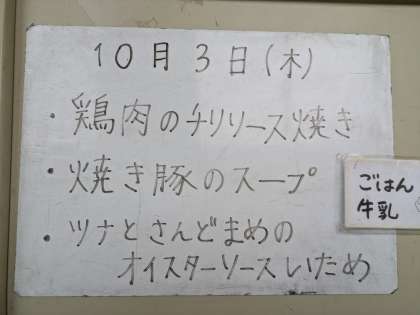 10月3日(木)
・鶏肉のチリソース焼き
・焼き豚のスープ
・ツナとさんどまめの
オイスターソースいため
ごはん
牛乳